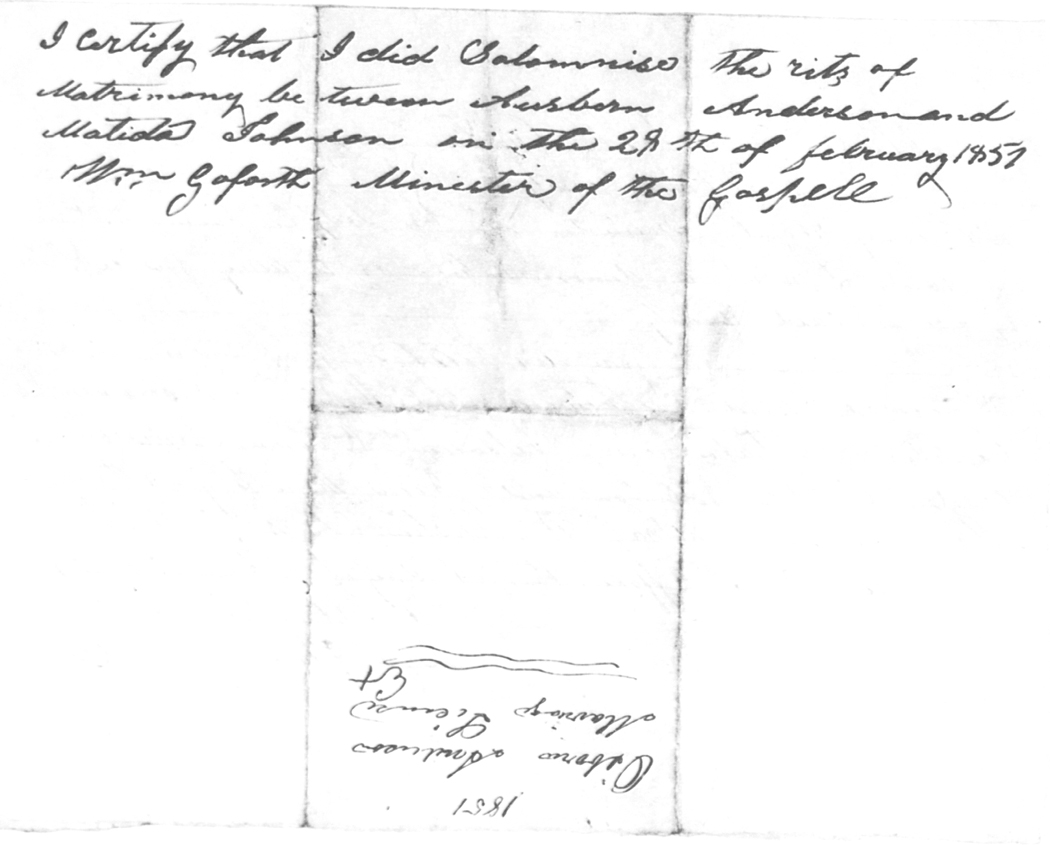 I certify that I did Solomnise the rits of
Matrimony between Ausbern Anderson and
Matilda Johnson on the 28 th of february 1851
Wm Goforth Minester of the Gospell
1851
Osborn Anderson
Marriage License
Ex